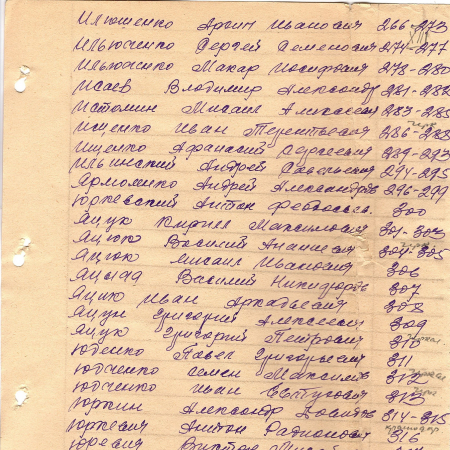 Илюшенко Архип Иванович 266-273
Ильюченко Сергей Семенович 274-277
Ильюченко Макар Иосифович 278-280
Исаев Владимир Александр 281-282
Истомин Михаил Алексеевич 283-285
Ищенко Иван Терентьевич 286-288
Ищенко Афанасий Сергеевич 289-293
Ильинский Андрей Савельевич 294-295
Ярмоленко Андрей Александров 296-299
Юркевский Антон 300
Яцук Кирилл Максимович 301-303
Яцюк Василий 304-305
Яцюк Михаил Иванович 306
Василий Никифоров 307
Яцук Иван Аркадьевич 308
Яцук Григорий Алексеевич 309
Яцук Григорий Петрович 310
Юденко Павел Григорьевич 311
Юдченко Семен Максимов 312
Юдченко Иван 313
Юркин Александр Давидов 314-315
Юркевич Антон Радионович 316
Юревич